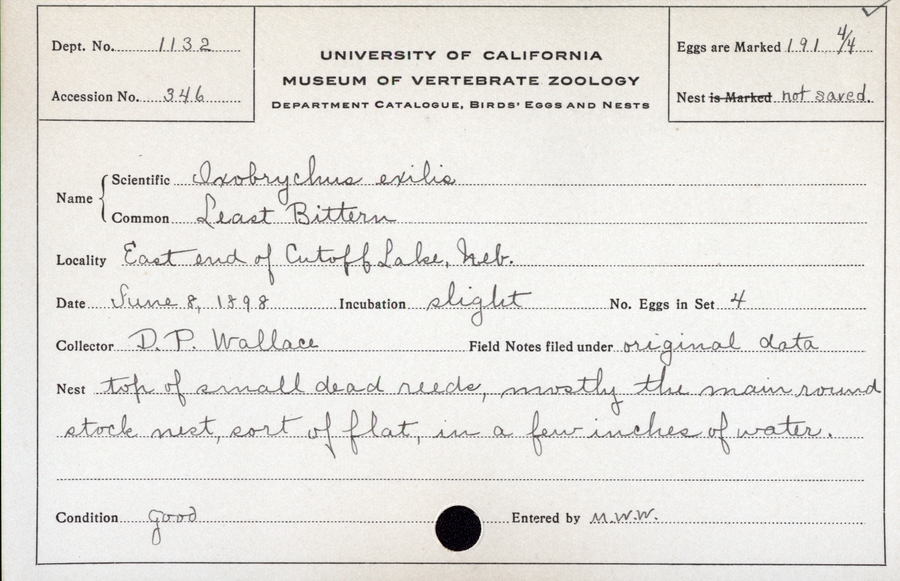 Dept. No. 1132
Accession No. 346
UNIVERSITY OF CALIFORNIA
MUSEUM OF VERTEBRATE ZOOLOGY
DEPARTMENT CATALOGUE, BIRDS' EGGS AND NESTS
Eggs are Marked 191 4/4
Nest is Marked not saved.
Name
Scientific Ixobrychus exilis
Common Least Bittern
Locality East end of Cutoff Lake, Neb.
Date June 8, 1898 Incubation slight No. Eggs in Set 4
Collector D. P. Wallace Field Notes filed under original data
Nest top of small dead reeds, mostly the main round
stock nest, sort of flat, in a few inches of water.
Condition good Entered by M.W.W.